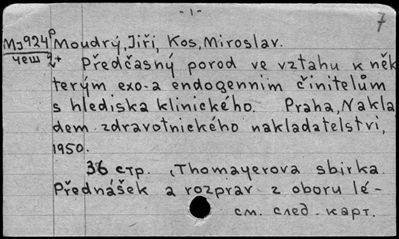 - 1 -
7
Mj924p Moudrý, Jiří, Kos, Miroslav.
чеш 2+ Předčasný porod ve vztahu k něk
terým exo- a endogennim činitelům
s hlediska klinického. Praha, Nakla
dem zdravotnického nakladatelstvi,
1950.
36 стр. , Thomayerova sbirka
Přednášek a rozprav z oboru lé-
см. след. карт.